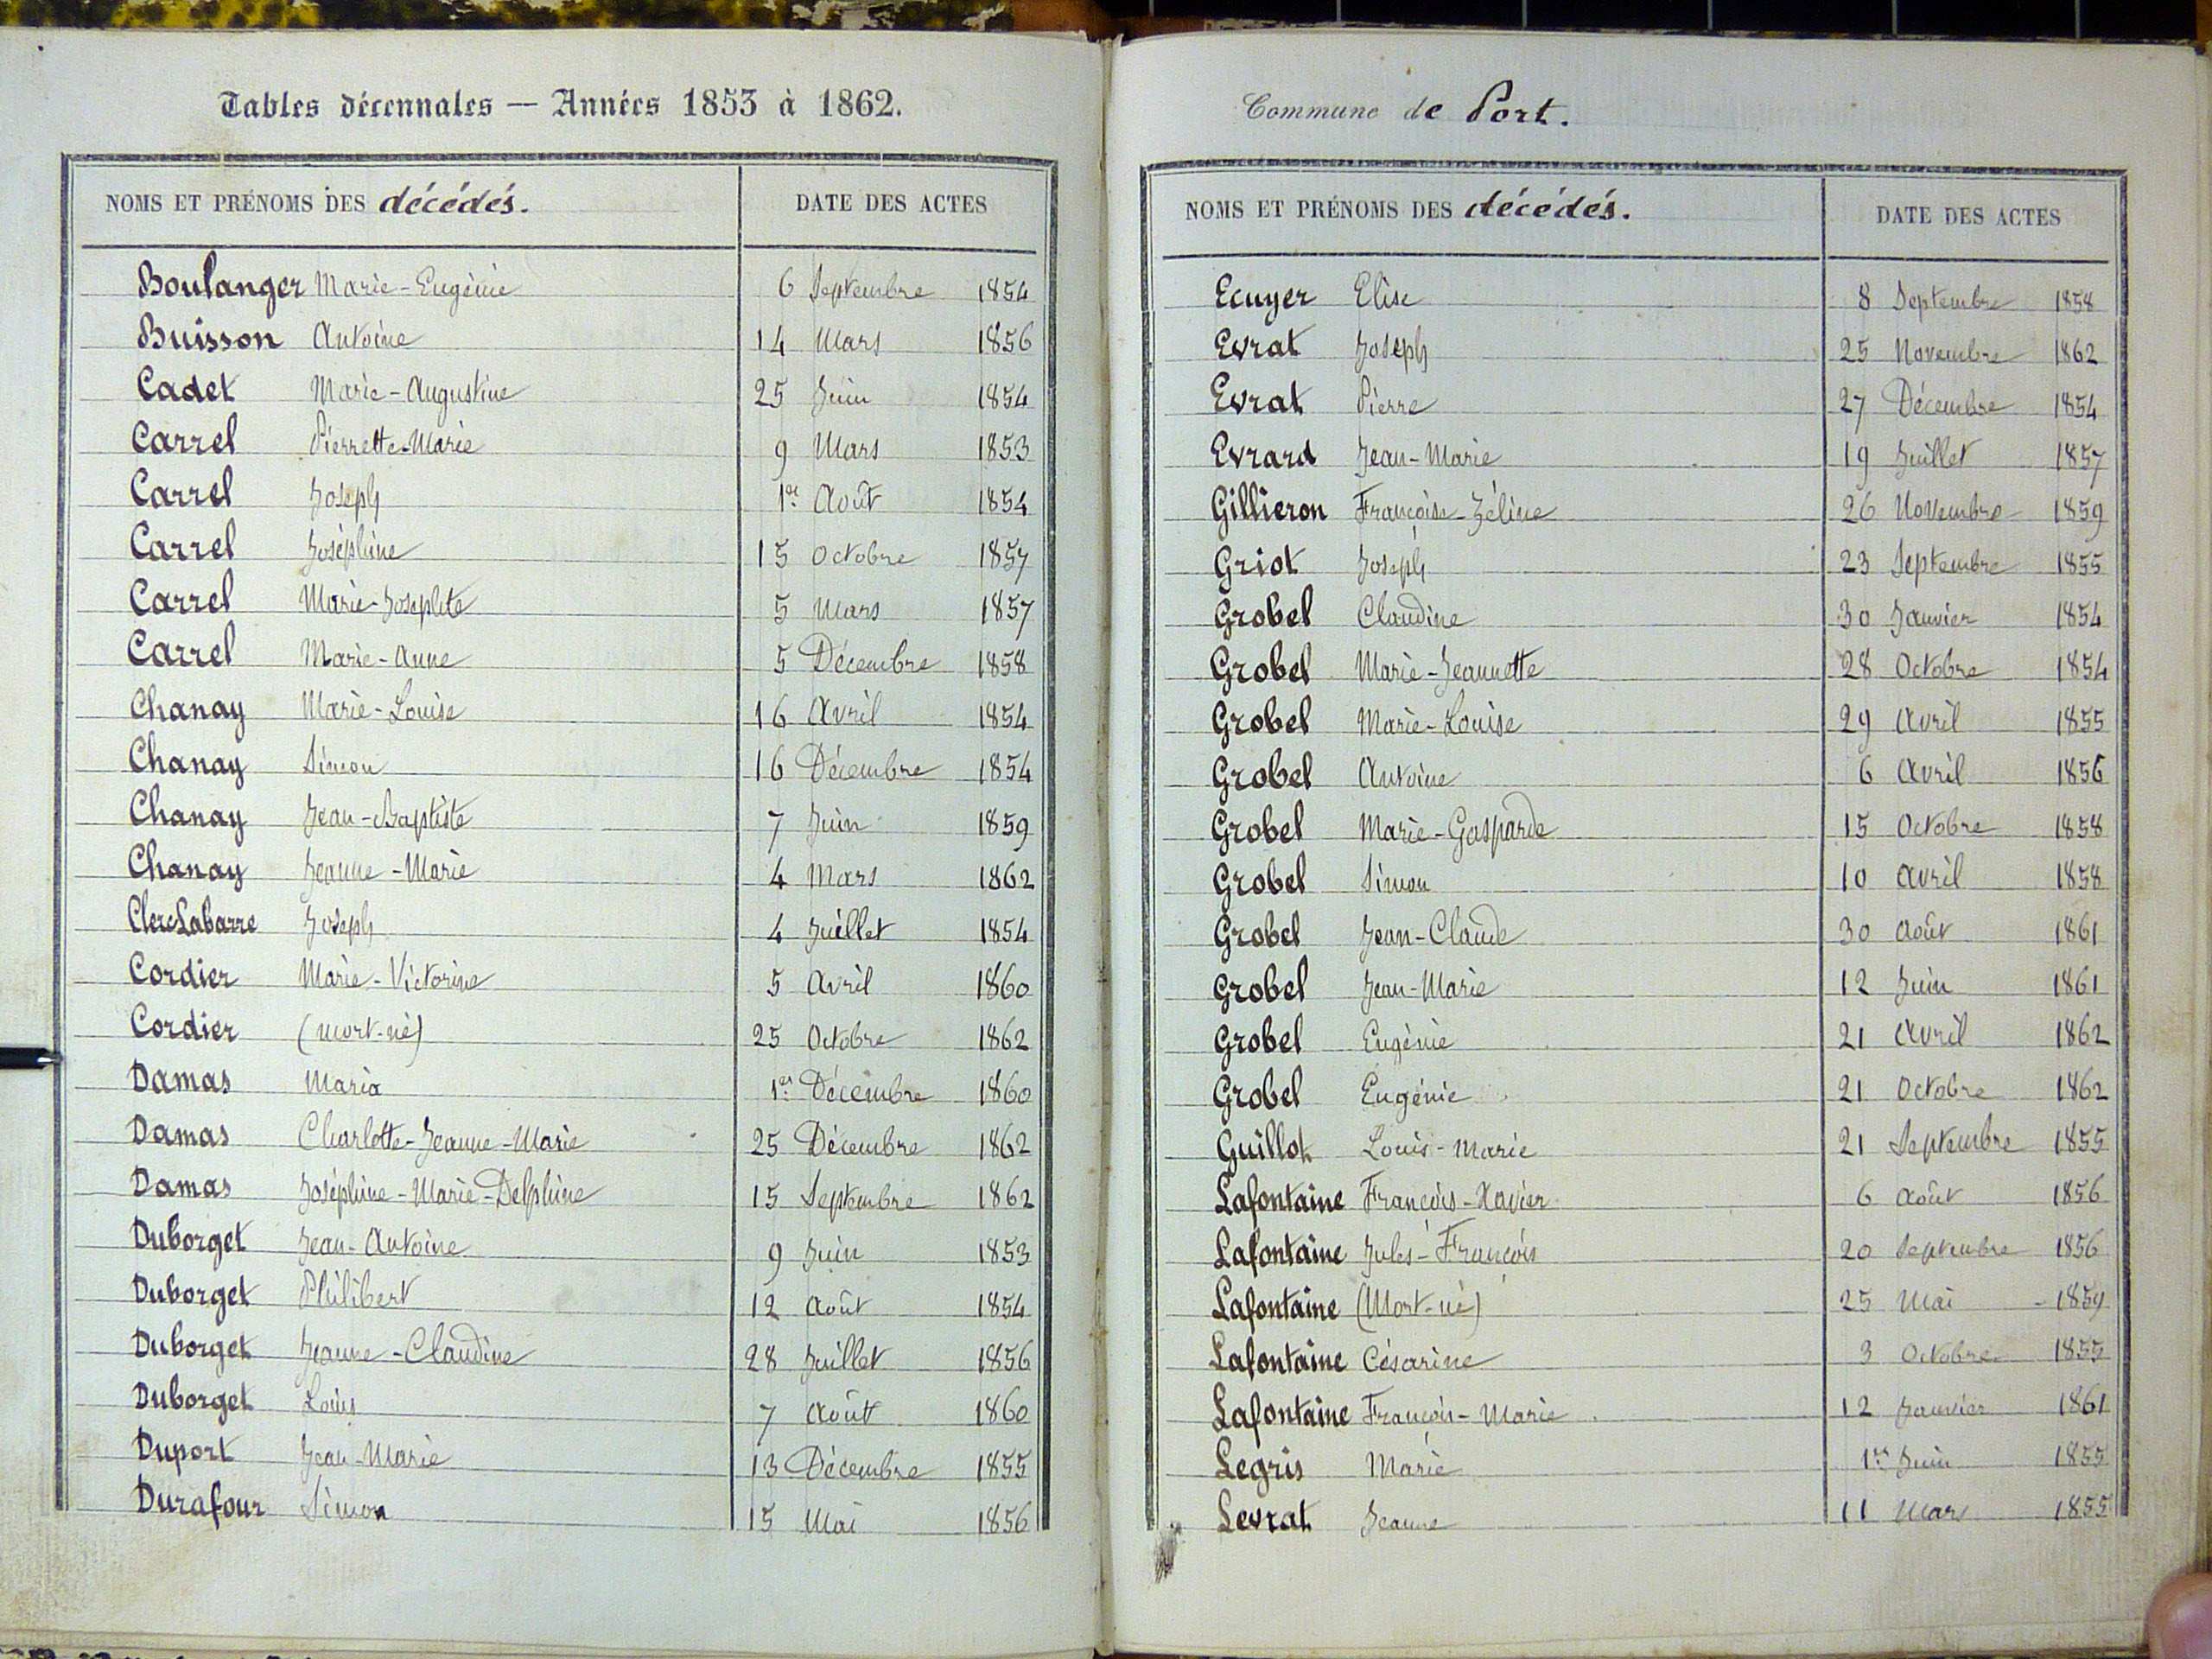 Tables décennales — Années 1853 à 1862.
NOMS ET PRÉNOMS DES décédés. DATE DES ACTES
Boulanger Marie-Eugénie 6 Septembre 1854
Buisson Antoine 14 Mars 1856
Cadet Marie-Augustine 25 Juin 1854
Carrel Pierrette-Marie 9 Mars 1853
Carrel Joseph 1er Août 1854
Carrel Joséphine 15 Octobre 1857
Carrel Marie-Josephte 5 Mars 1857
Carrel Marie-Anne 5 Décembre 1858
Chanay Marie-Louise 16 Avril 1854
Chanay Simon 16 Décembre 1854
Chanay Jean-Baptiste 7 Juin 1859
Chanay Jeanne-Marie 4 Mars 1862
Clerc Labarre Joseph 4 Juillet 1854
Cordier Marie-Victorine 5 Avril 1860
Cordier (mort-né) 25 Octobre 1862
Damas Maria 1er Décembre 1860
Damas Charlotte-Jeanne-Marie 25 Décembre 1862
Damas Joséphine-Marie-Delphine 15 Septembre 1862
Duborget Jean-Antoine 9 Juin 1853
Duborget Philibert 12 Août 1854
Duborget Jeanne-Claudine 28 Juillet 1856
Duborget Louis 7 Août 1860
Duport Jean-Marie 13 Décembre 1855
Durafour Simon 15 Mai 1856
Commune de Port.
NOMS ET PRÉNOMS DES décédés. DATE DES ACTES
Ecuyer Elise 8 Septembre 1858
Evrat Joseph 25 Novembre 1862
Evrat Pierre 27 Décembre 1854
Evrard Jean-Marie 19 Juillet 1857
Gillieron Françoise-Zéline 26 Novembre 1859
Griot Joseph 23 Septembre 1855
Grobel Claudine 30 Janvier 1854
Grobel Marie-Jeannette 28 Octobre 1854
Grobel Marie-Louise 29 Avril 1855
Grobel Antoine 6 Avril 1856
Grobel Marie-Gasparde 15 Octobre 1858
Grobel Simon 10 Avril 1858
Grobel Jean-Claude 30 Août 1861
Grobel Jean-Marie 12 Juin 1861
Grobel Eugénie 21 Avril 1862
Grobel Eugénie 21 Octobre 1862
Guillot Louis-Marie 21 Septembre 1855
Lafontaine François-Xavier 6 Août 1856
Lafontaine Jules-François 20 Septembre 1856
Lafontaine (Mort-né) 25 Mai 1859
Lafontaine Césarine 3 Octobre 1855
Lafontaine François-Marie 12 Janvier 1861
Legris Marie 1er Juin 1855
Levrat Jeanne 11 Mars 1855